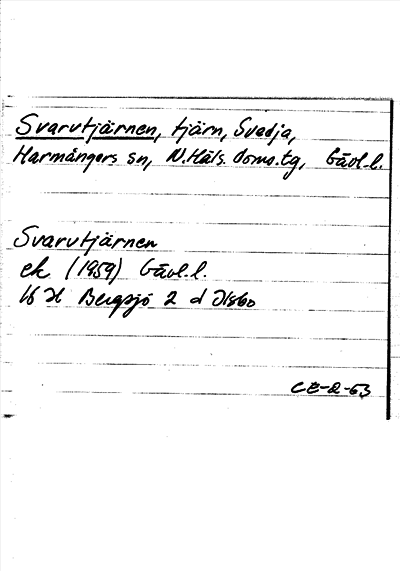 Svarvtjärnen, tjärn, Svedja,
Harmångers sn, N. Häls. doms.tg, Gävl.l.
Svarvtjärnen
ek (1959) Gävl.l.
16 H Bergsjö 2 d Ilsbo
CE-2-63